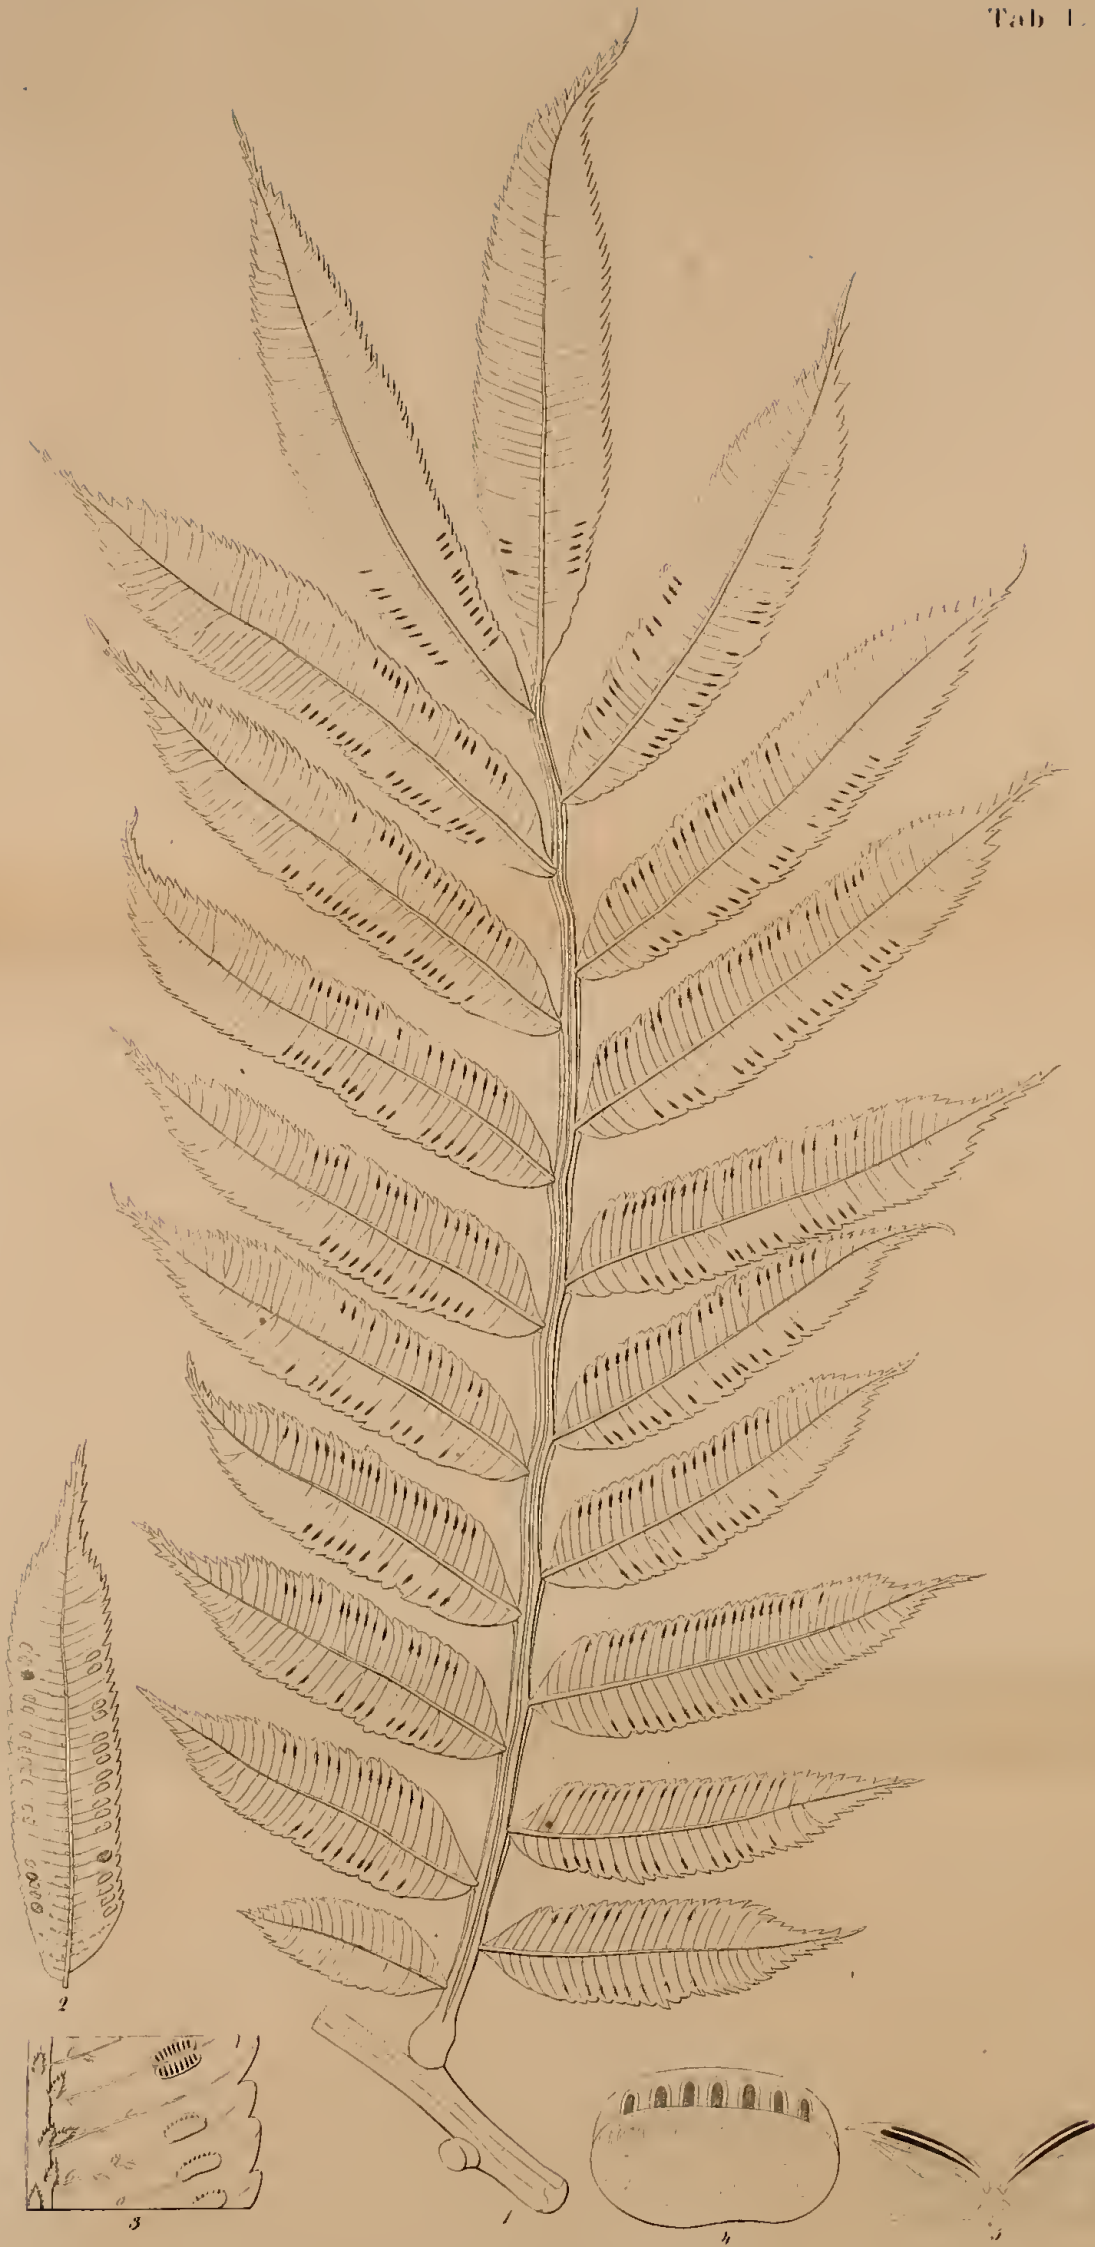 Tab L.
2
3
1
4
5